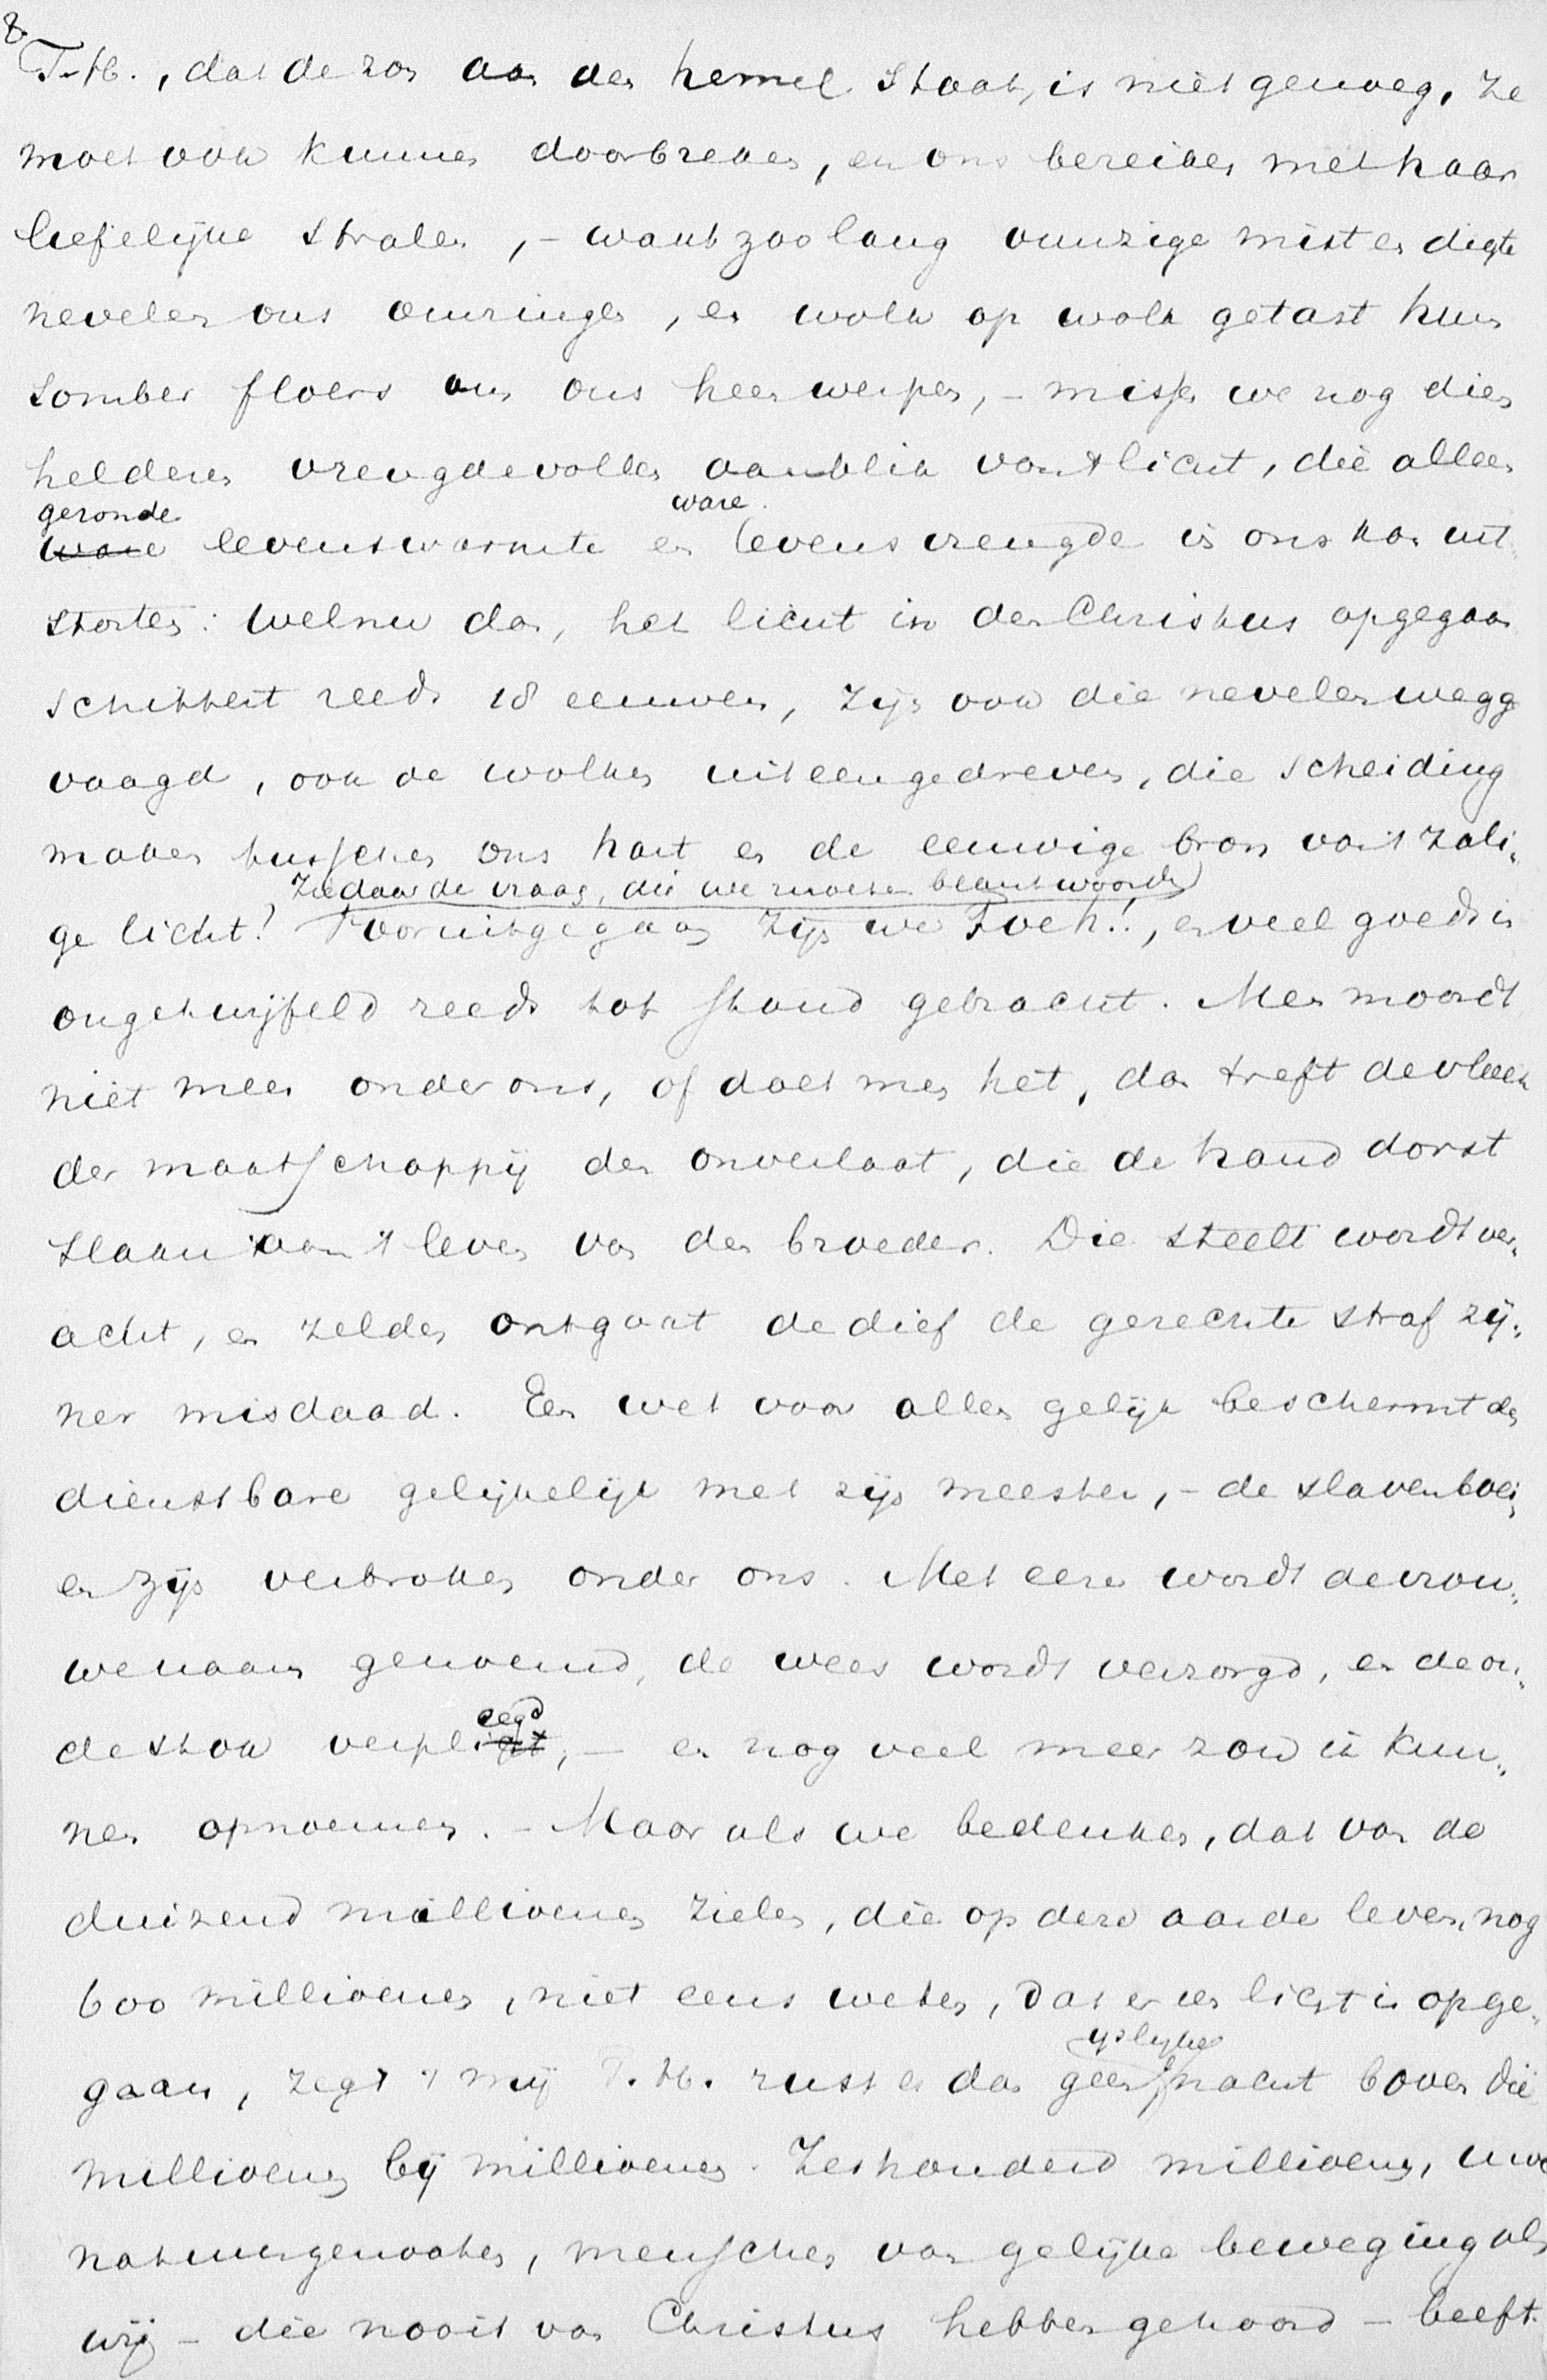 8.
T.H., dat de zon aan den hemel staat, is niet genoeg, ze
moet ook kunnen doorbreken, en ons bereiken met haar
liefelijke stralen, – want zoo lang vunzige mist en digte
nevelen ons omringen, en wolk op wolk getast hun
somber floers om ons heen werpen, – missen we nog dien
helderen vreugdevollen aanblik van 't licht, die alleen
gezonde ware
ware levenswarmte en levensvreugde in ons kan uit„
storten: welnu dan, het licht in den Christus opgegaan
schittert reeds 18 eeuwen, zijn ook die nevelen wegge
vaagd, ook de wolken uiteengedreven, die scheiding
maken tusschen ons hart en de eeuwige bron van 't zali„
Ziedaar de vraag, die we moeten beantwoorden
ge licht? Vooruitgegaan zijn we Toch!!, en veel goeds is
ongetwijfeld reeds tot stand gebracht. Men moordt
niet meer onder ons, of doet men het, dan treft de vloek
der maatschappij den onverlaat, die de hand dorst
slaan aan 't leven van den broeder. Die steelt wordt ver„
acht, en zelden ontgaat de dief de gerechte straf zij„
ner misdaad. Een wet voor allen gelijk beschermt den
dienstbare gelijkelijk met zijn meester, – de slavenboei„
en zijn verbroken onder ons. Met eere wordt de vrou„
wenaam genoemd, de wees wordt verzorgd, en de ou„
eegd
de stok verpligt, – en nog veel meer zou ik kun„
nen opnoemen. – Maar als we bedenken, dat van de
duizend millioenen zielen, die op deze aarde leven, nog
600 millioenen, niet eens weten, dat er een licht is opge„
ijslijke
gaan, zegt 't mij T.H. rust er dan geen nacht boven die
millioenen bij millioenen. Zeshonderd millioenen, uwe
natuurgenooten, menschen van gelijke beweging als
wij – die nooit van Christus hebben gehoord – beeft